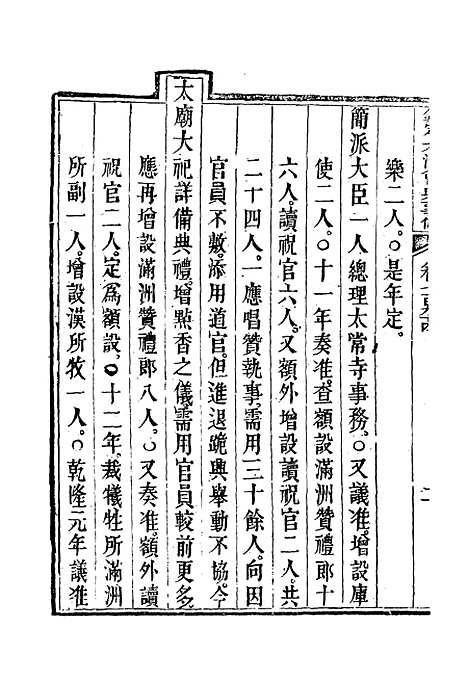 樂二人。○是年定。
簡派大臣一人總理太常寺事務。○又議准。增設庫
使二人。○十一年奏准。查額設滿洲贊禮郎十
六人。讀祝官六人。又額外增設讀祝官二人。共
二十四人。一應唱贊執事。需用三十餘人。向因
官員不敷。添用道官。但進退跪興舉動不協。今
太廟大祀詳備典禮。增點香之儀。需用官員較前更多
應再增設滿洲贊禮郎八人。○又奏准。額外讀
祝官二人。定爲額設。○十二年。裁犧牲所滿洲
所副一人。增設漢所牧一人。○乾隆元年議准